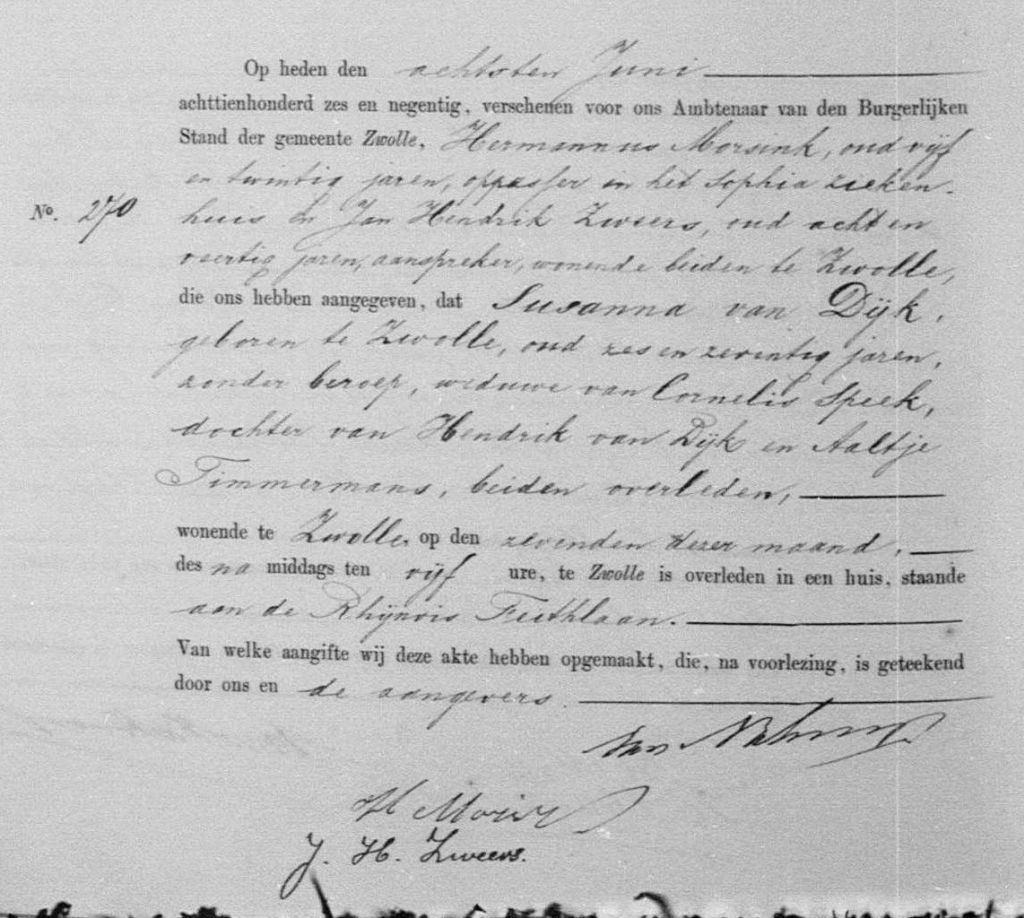 Op heden den achtsten Juni
achttienhonderd zes en negentig, verschenen voor ons Ambtenaar van den Burgerlijken
Stand der gemeente Zwolle, Hermannus Morsink, oud vijf
en twintig jaren, oppasser in het Sophia zieken-
No. 270 huis en Jan Hendrik Zweers, oud acht en
veertig jaren, aanspreker, wonende beiden te Zwolle,
die ons hebben aangegeven, dat Susanna van Dijk,
geboren te Zwolle, oud zes en zeventig jaren,
zonder beroep, weduwe van Cornelis Speek,
dochter van Hendrik van Dijk en Aaltje
Timmermans, beiden overleden,
wonende te Zwolle, op den zevenden dezer maand,
des na middags ten vijf ure, te Zwolle is overleden in een huis, staande
aan de Rhijnvis Feithlaan.
Van welke aangifte wij deze akte hebben opgemaakt, die, na voorlezing, is geteekend
door ons en de aangevers.
van
H
J. H. Zweers.